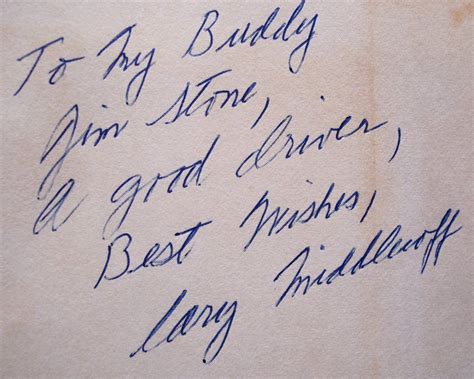 To My Buddy
Jim Stone,
A good driver,
Best Wishes,
Cary Middlecoff